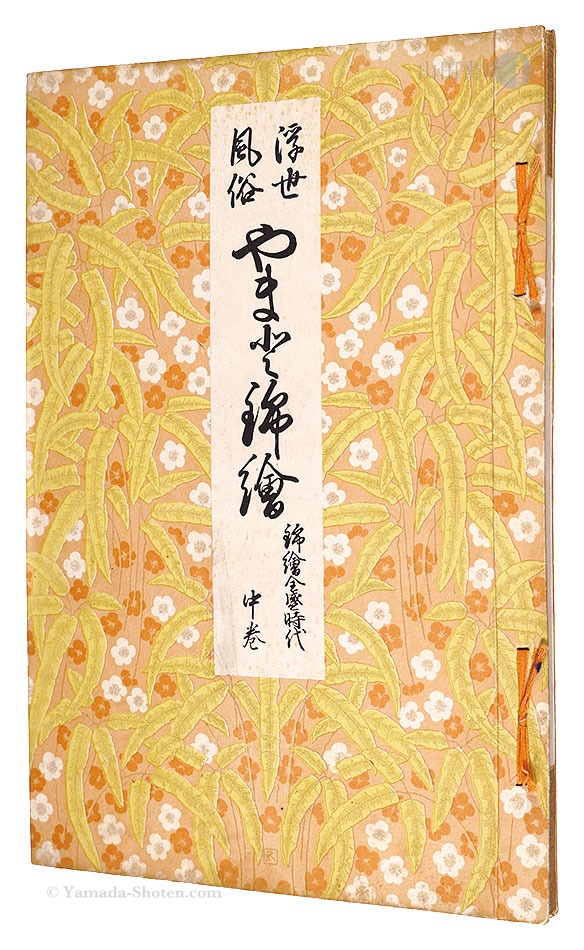 浮世
風俗
やまと錦繪
錦繪全盛時代
中巻
山田書
© Yamada-Shoten.com